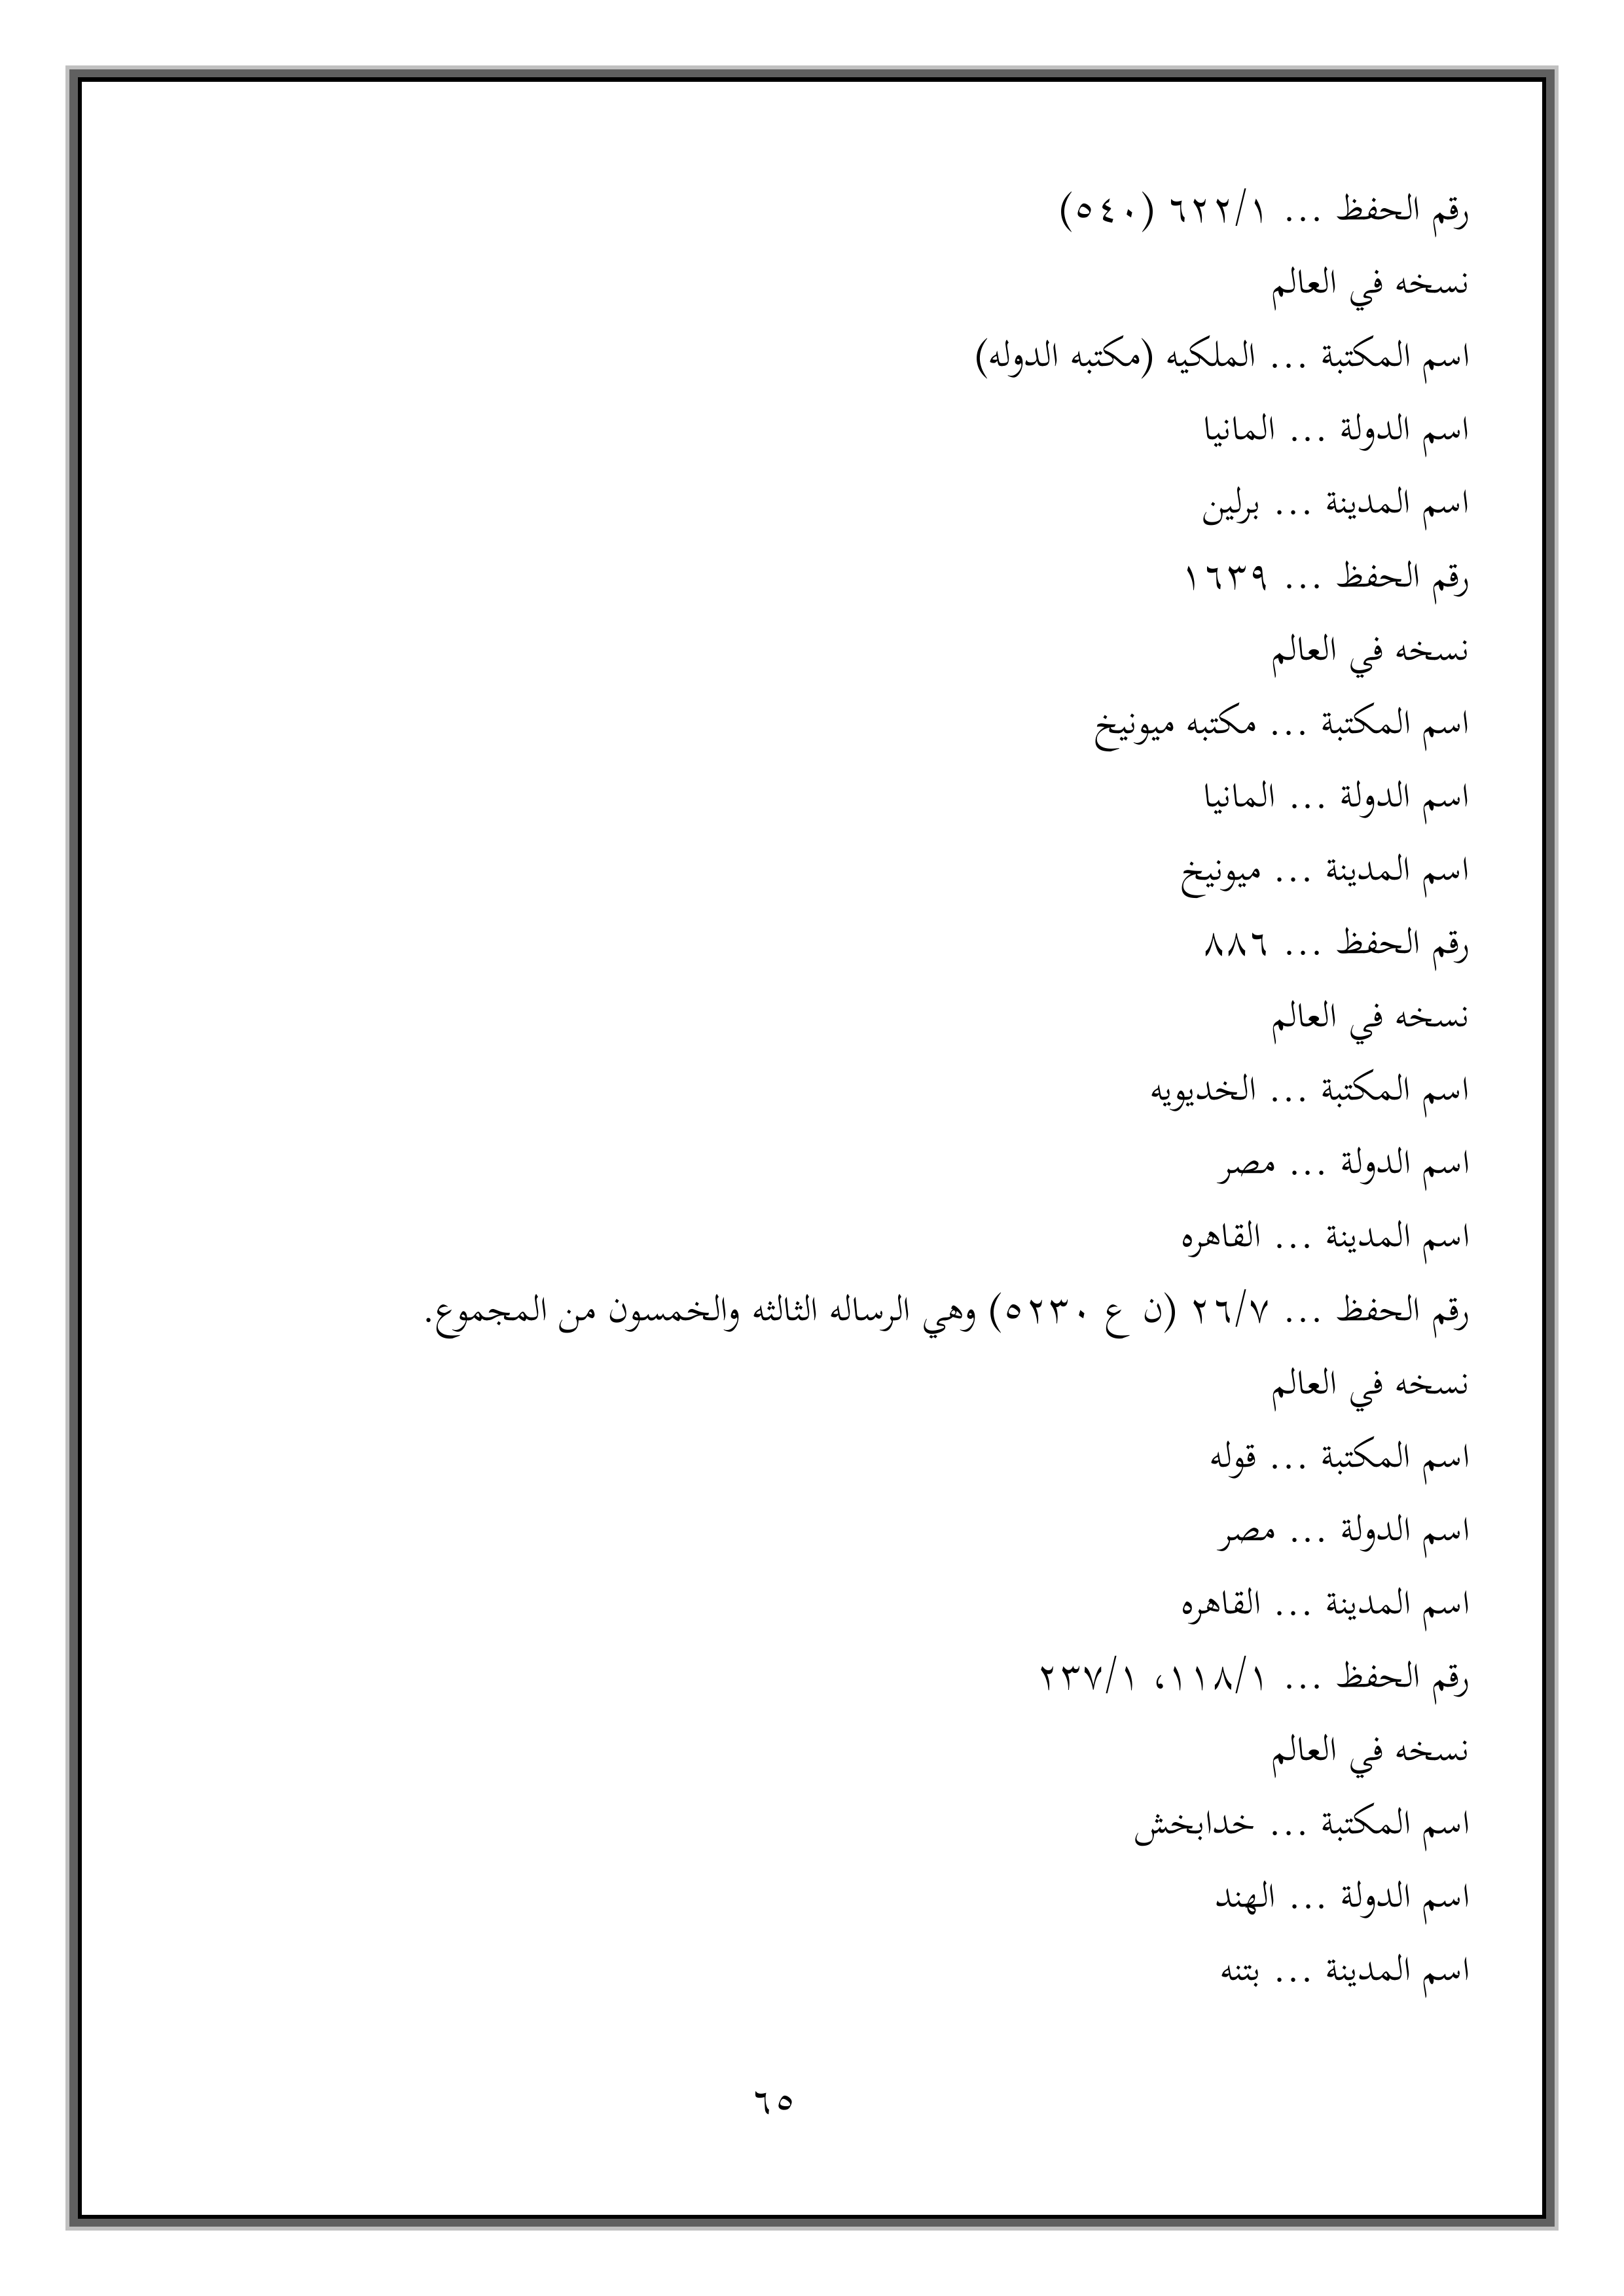 رقم الحفظ ... ٦٢٢/١ (٥٤٠)
نسخه في العالم
اسم المكتبة ... الملكيه (مكتبه الدوله)
اسم الدولة ... المانيا
اسم المدينة ... برلين
رقم الحفظ ... ١٦٣٩
نسخه في العالم
اسم المكتبة ... مكتبه ميونيخ
اسم الدولة ... المانيا
اسم المدينة ... ميونيخ
رقم الحفظ ... ٨٨٦
نسخه في العالم
اسم المكتبة ... الخديويه
اسم الدولة ... مصر
اسم المدينة ... القاهره
رقم الحفظ ... ٢٦/٧ (ن ع ٥٢٣٠) وهي الرساله الثالثه والخمسون من المجموع.
نسخه في العالم
اسم المكتبة ... قوله
اسم الدولة ... مصر
اسم المدينة ... القاهره
رقم الحفظ ... ١١٨/١، ٢٣٧/١
نسخه في العالم
اسم المكتبة ... خدابخش
اسم الدولة ... الهند
اسم المدينة ... بتنه
٦٥